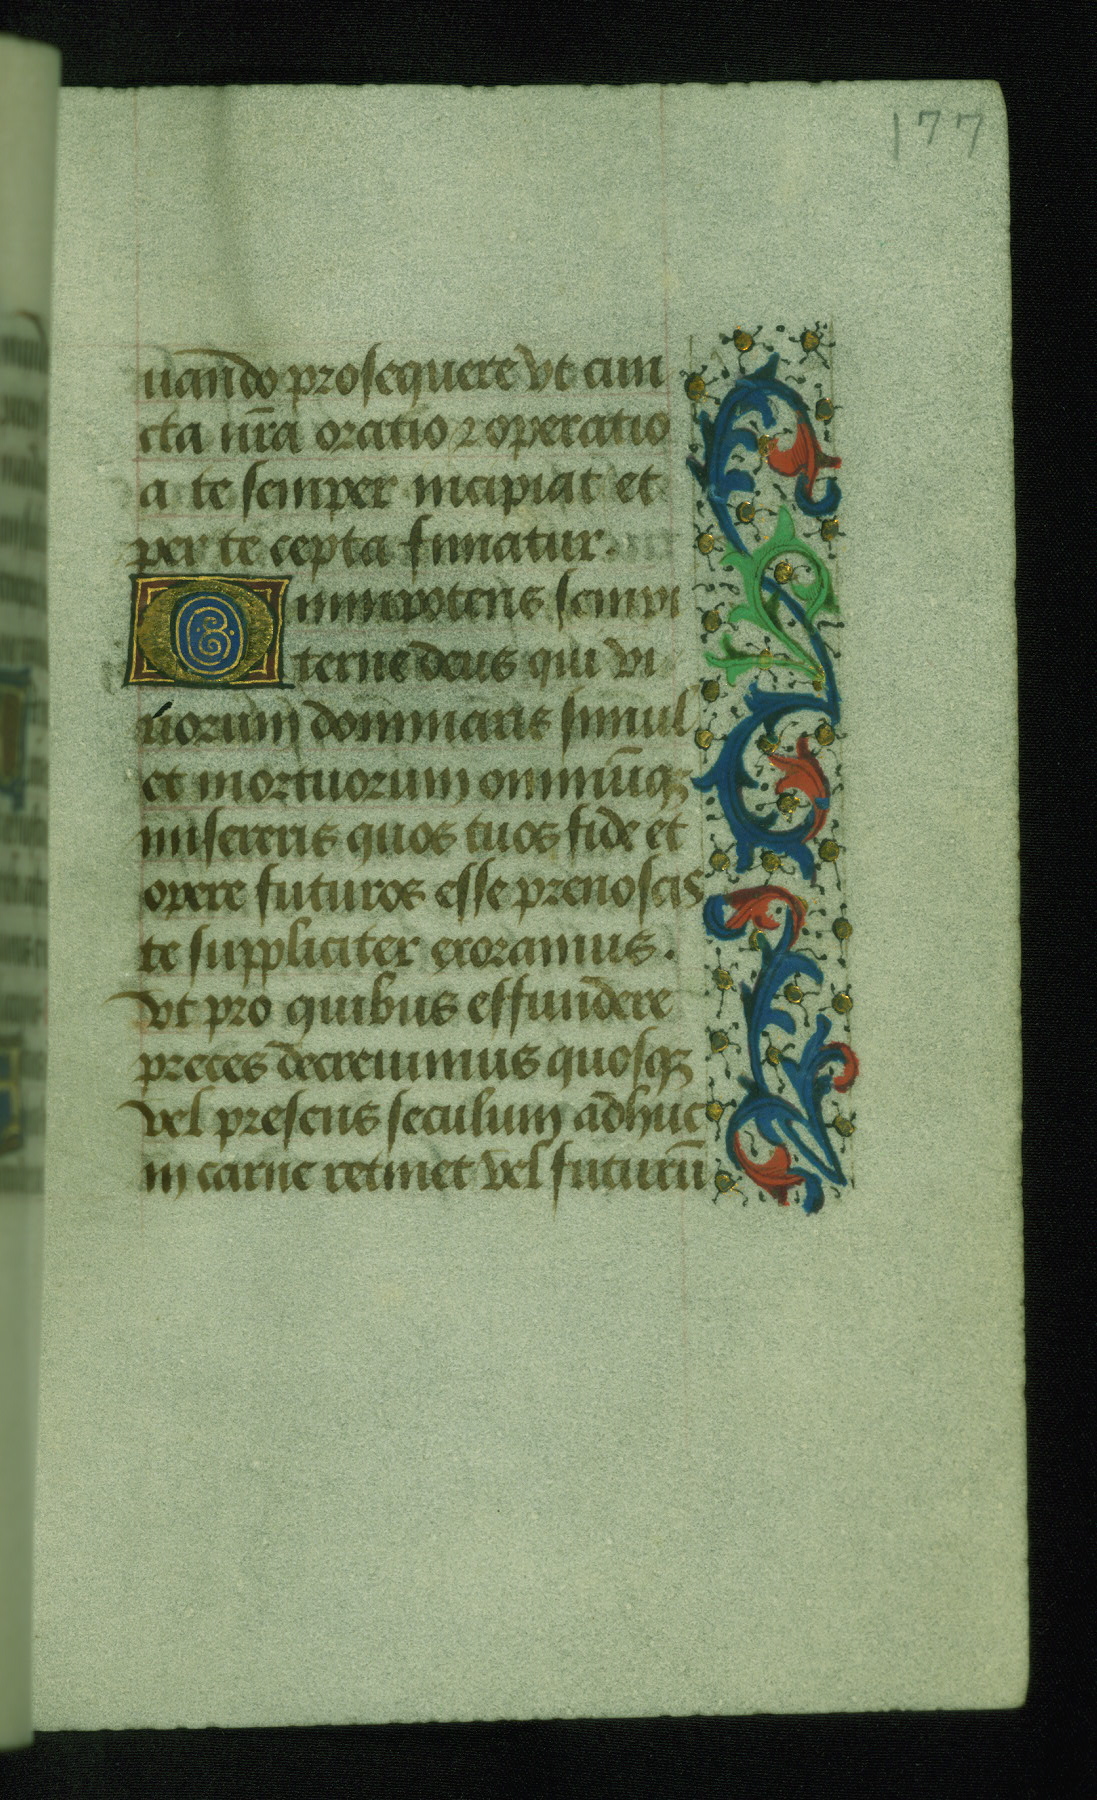 177
uando prosequere vt cun
cta nr̄a oratio ⁊ operatio
a te semper incipiat et
per te cepta finiatur.
Omnipotens sempi
terne deus qui vi
uorum dominaris simul
et mortuorum omniūqꝫ
misereris quos tuos fide et
opere futuros esse prenoscis
te suppliciter exoramus.
vt pro quibus effundere
preces decreuimus quosqꝫ
vel presens seculum adhuc
in carne retinet vel futurū